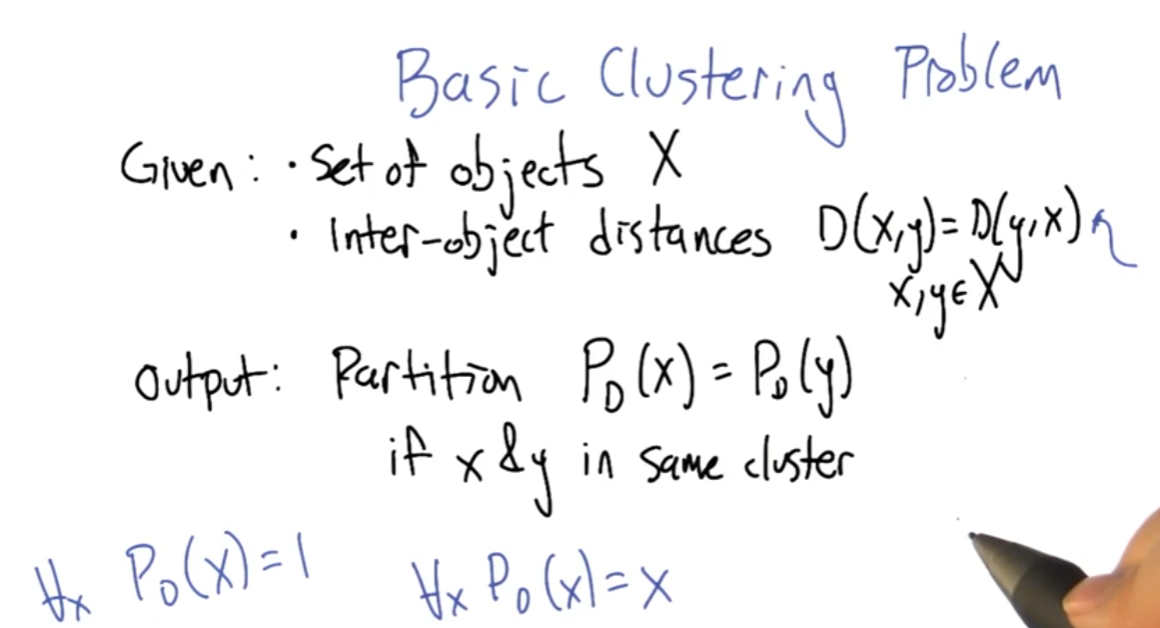 Basic Clustering Problem
Given: • Set of objects X
• Inter-object distances D(x,y)=D(y,x)
x,y∈X
Output: Partition P_D(x) = P_D(y)
if x & y in same cluster
∀x P_D(x)=1 ∀x P_D(x)=x